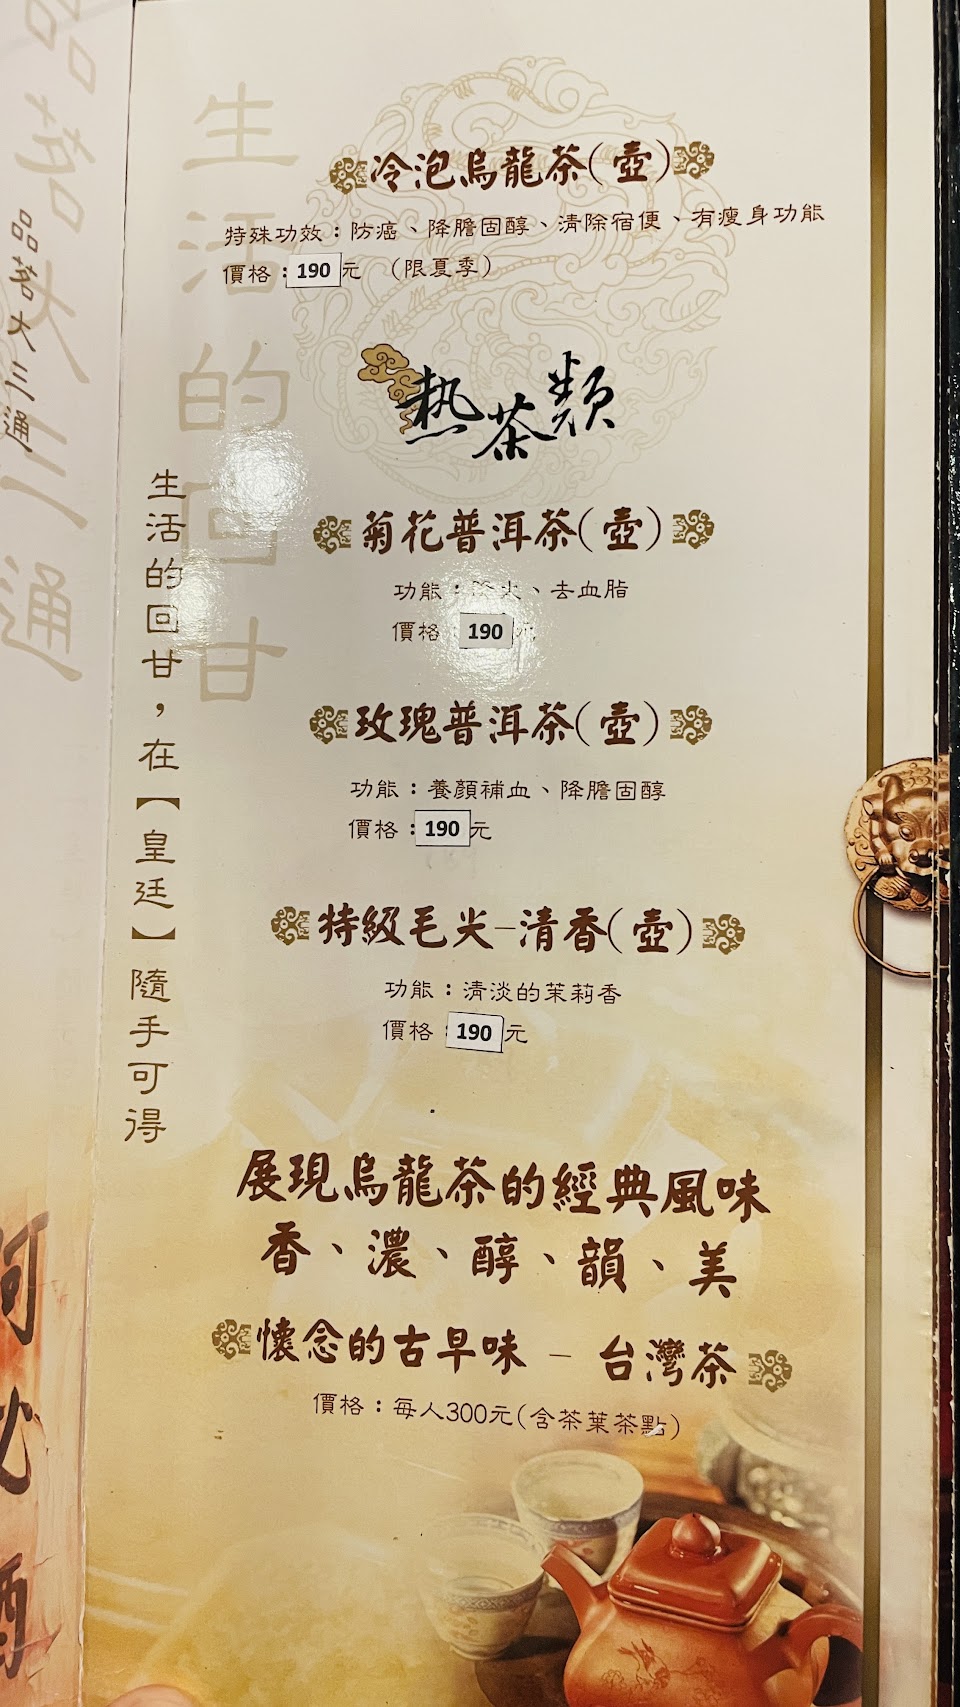 冷泡烏龍茶(壺)
特殊功效：防癌、降膽固醇、清除宿便、有瘦身功能
價格：190元 (限夏季)
熱茶類
菊花普洱茶(壺)
功能：降火、去血脂
價格：190元
玫瑰普洱茶(壺)
功能：養顏補血、降膽固醇
價格：190元
特級毛尖-清香(壺)
功能：清淡的茉莉香
價格：190元
展現烏龍茶的經典風味
香、濃、醇、韻、美
懷念的古早味 - 台灣茶
價格：每人300元(含茶葉茶點)
生活的回甘
生活的回甘，在【皇廷】隨手可得
品茗大三通
品茗大三通
何必酒